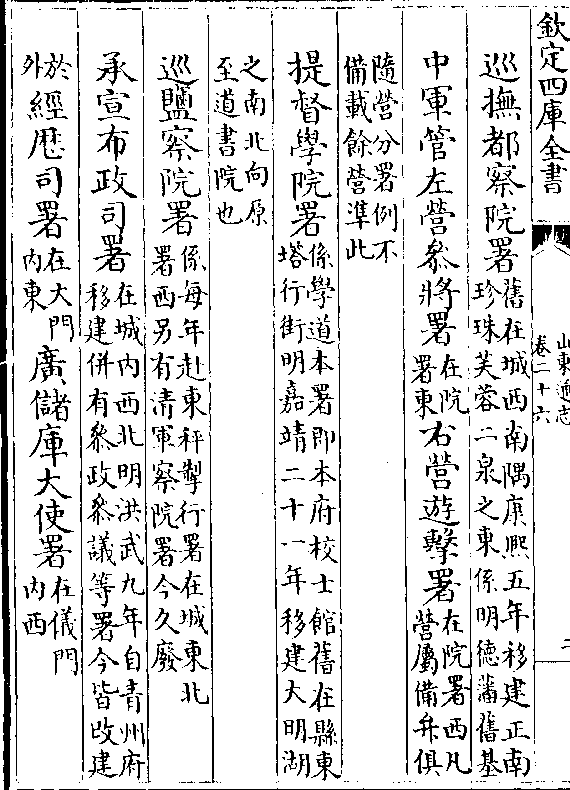 欽定四庫全書
山東通志
卷二十六
二
巡撫都察院署舊在城西南隅康熙五年移建正南
珍珠芙蓉二泉之東係明德藩舊基
中軍管左營叅將署在院
署東右營遊擊署在院署西凡
營屬備弁俱
隨營分署例不
備載餘營準此
提督學院署係學道本署即本府校士館舊在縣東
塔行街明嘉靖二十一年移建大明湖
之南北向原
至道書院也
巡鹽察院署係每年赴東秤掣行署在城東北
署西另有清軍察院署今久廢
承宣布政司署在城内西北明洪武九年自青州府
移建併有叅政叅議等署今皆改建
於
外經歷司署在大門
内東廣儲庫大使署在儀門
内西